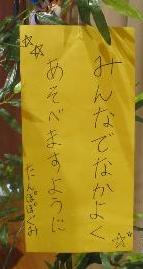 みんなでなかよく
あそべますように
たんぽぽぐみ